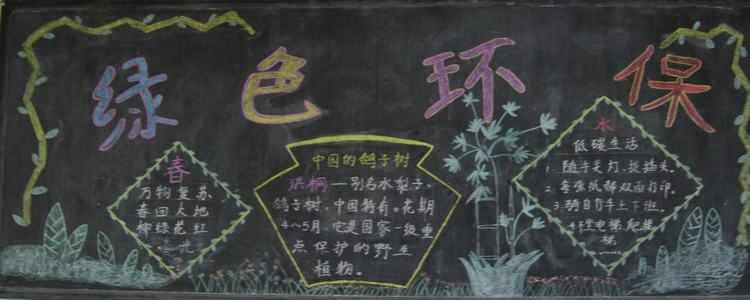 绿色环保
春
万物复苏
春回大地
柳绿花红
中国的鸽子树
珙桐——别名水梨子、
鸽子树,中国特有。花期
4～5月,它是国家一级重
点保护的野生
植物。
低碳生活
1. 随手关灯、拔插头。
2. 每张纸都双面打印。
3. 骑自行车上下班。
梯。